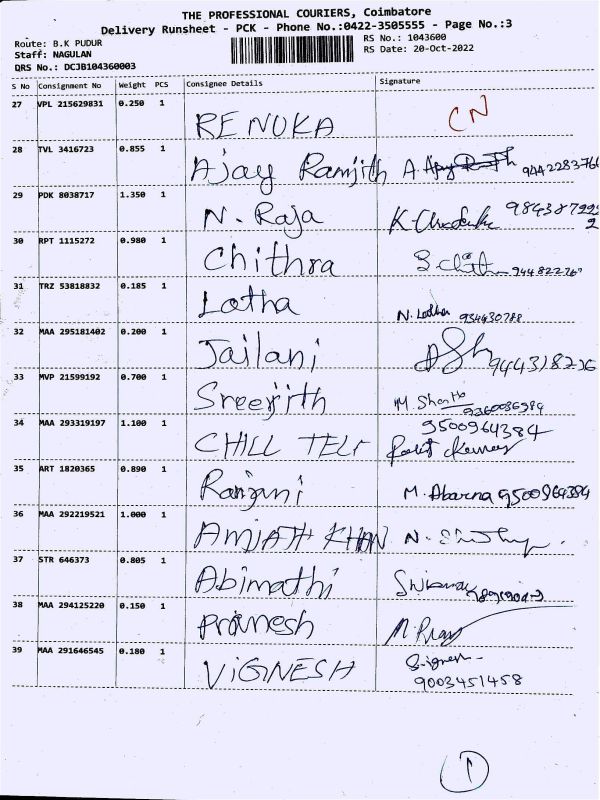 THE PROFESSIONAL COURIERS, Coimbatore
Delivery Runsheet - PCK - Phone No.:0422-3505555 - Page No.:3
Route: B.K PUDUR
RS No.: 1043600
Staff: NAGULAN
RS Date: 20-Oct-2022
DRS No.: DCJB104360003
S No Consignment No Weight PCS Consignee Details Signature
27 VPL 215629831 0.250 1 RENUKA CN
28 TVL 3416723 0.855 1 Ajay Ramjith A.
29 PDK 8038717 1.350 1 N. Raja
30 RPT 1115272 0.980 1 Chithra
31 TRZ 53818832 0.185 1 Lotha N.
32 MAA 295181402 0.200 1 Jailani
33 MVP 21599192 0.700 1 Sreejith M.
34 MAA 293319197 1.100 1 CHILL 9500964384
35 ART 1820365 0.890 1 Ranjani M. Abarna 9500964384
36 MAA 292219521 1.000 1 KHAN N.
37 STR 646373 0.805 1 Abimathi
38 MAA 294125220 0.150 1 Pranesh
39 MAA 291646545 0.180 1 ViGINESH
9003451458
1